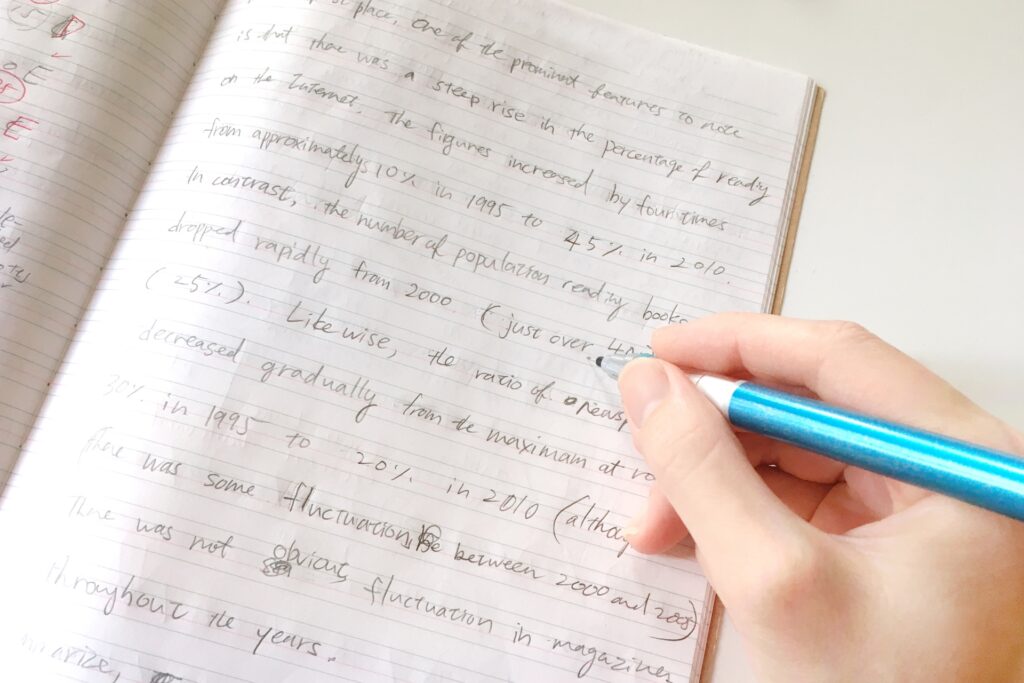 place, One of the prominent features to note
is that there was a steep rise in the percentage of reading
on the Internet. The figures increased by four times
from approximately 10% in 1995 to 45% in 2010.
In contrast, the number of population reading books
dropped rapidly from 2000 (just over
(25%). Likewise, the ratio of
decreased gradually from the maximam at
30% in 1995 to 20% in 2010 (
there was some fluctuation between 2000 and 2005)
There was not obvious fluctuation in magazines
throughout the years.